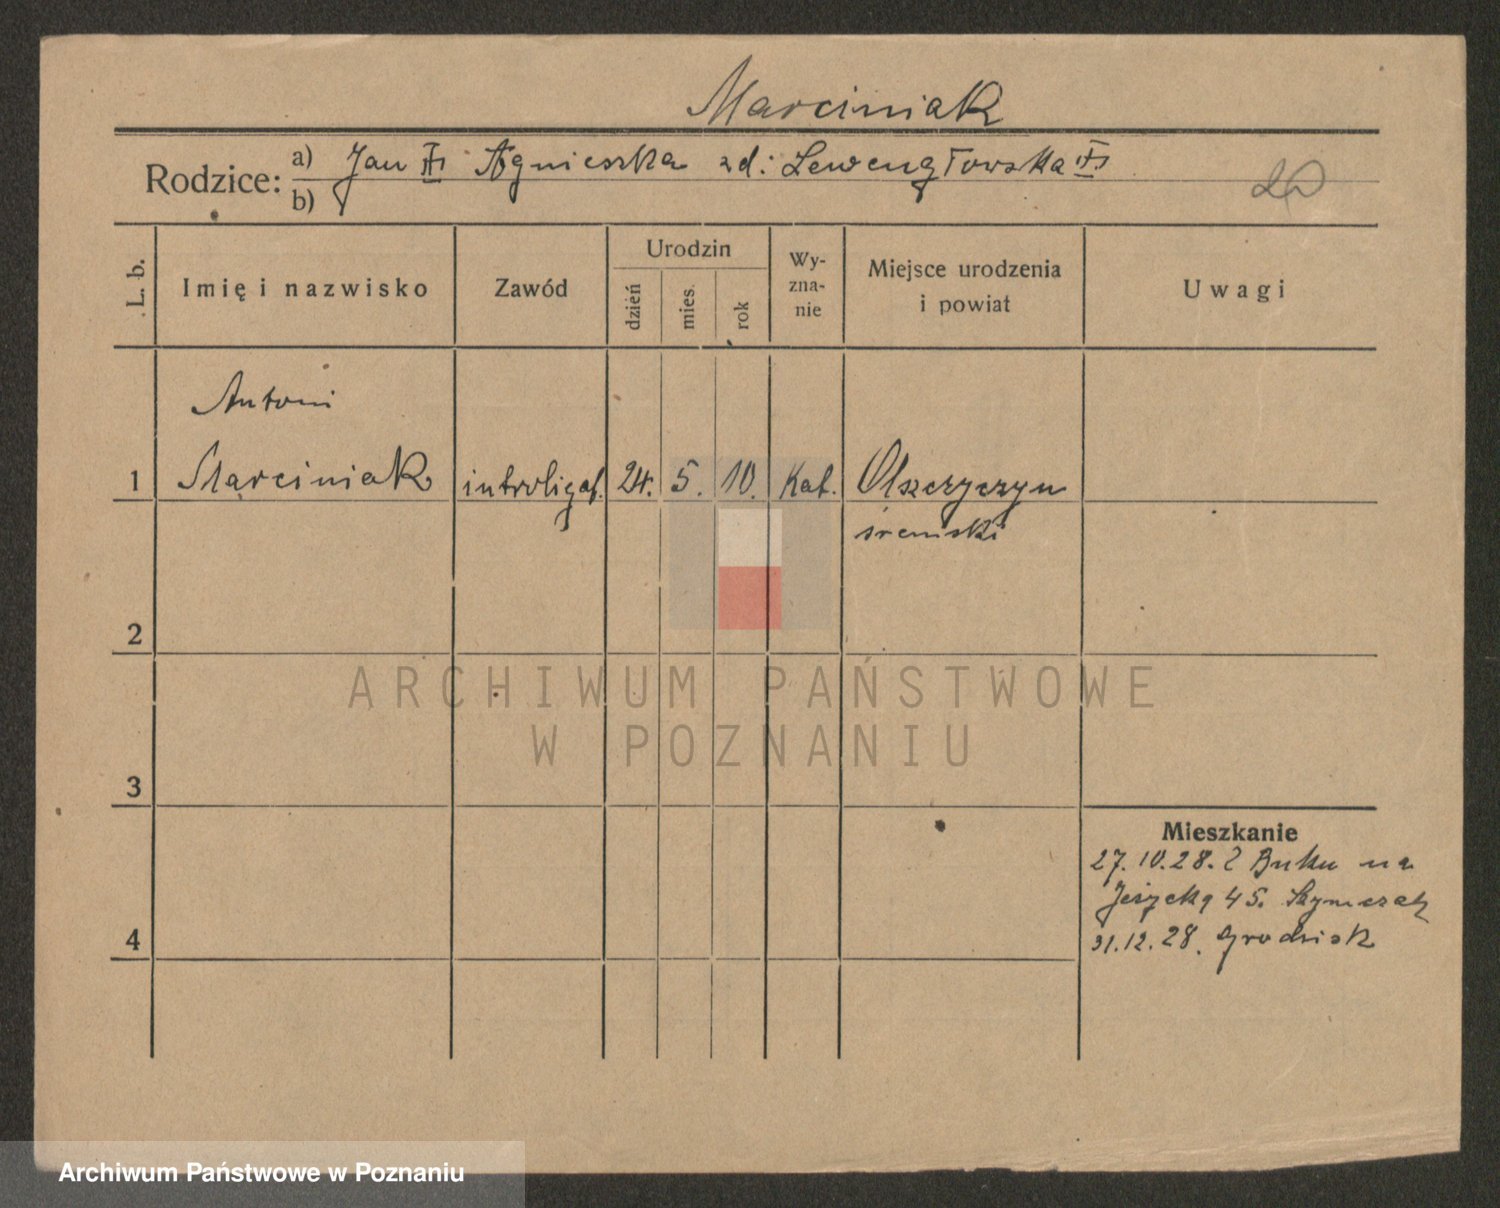 Marciniak
Rodzice: a) Jan Agnieszka zd:
b)
L. b.
Imię i nazwisko
Zawód
Urodzin
dzień
mies.
rok
Wy-
zna-
nie
Miejsce urodzenia
i powiat
Uwagi
Antoni
1 Marciniak introligat. 24. 5. 10. Kat.
śremski
2
3
4
Mieszkanie
27.10.28. Z Buku na
Jeżycką 45. Szymczak
31.12.28. Grodzisk
ARCHIWUM PAŃSTWOWE
W POZNANIU
Archiwum Państwowe w Poznaniu